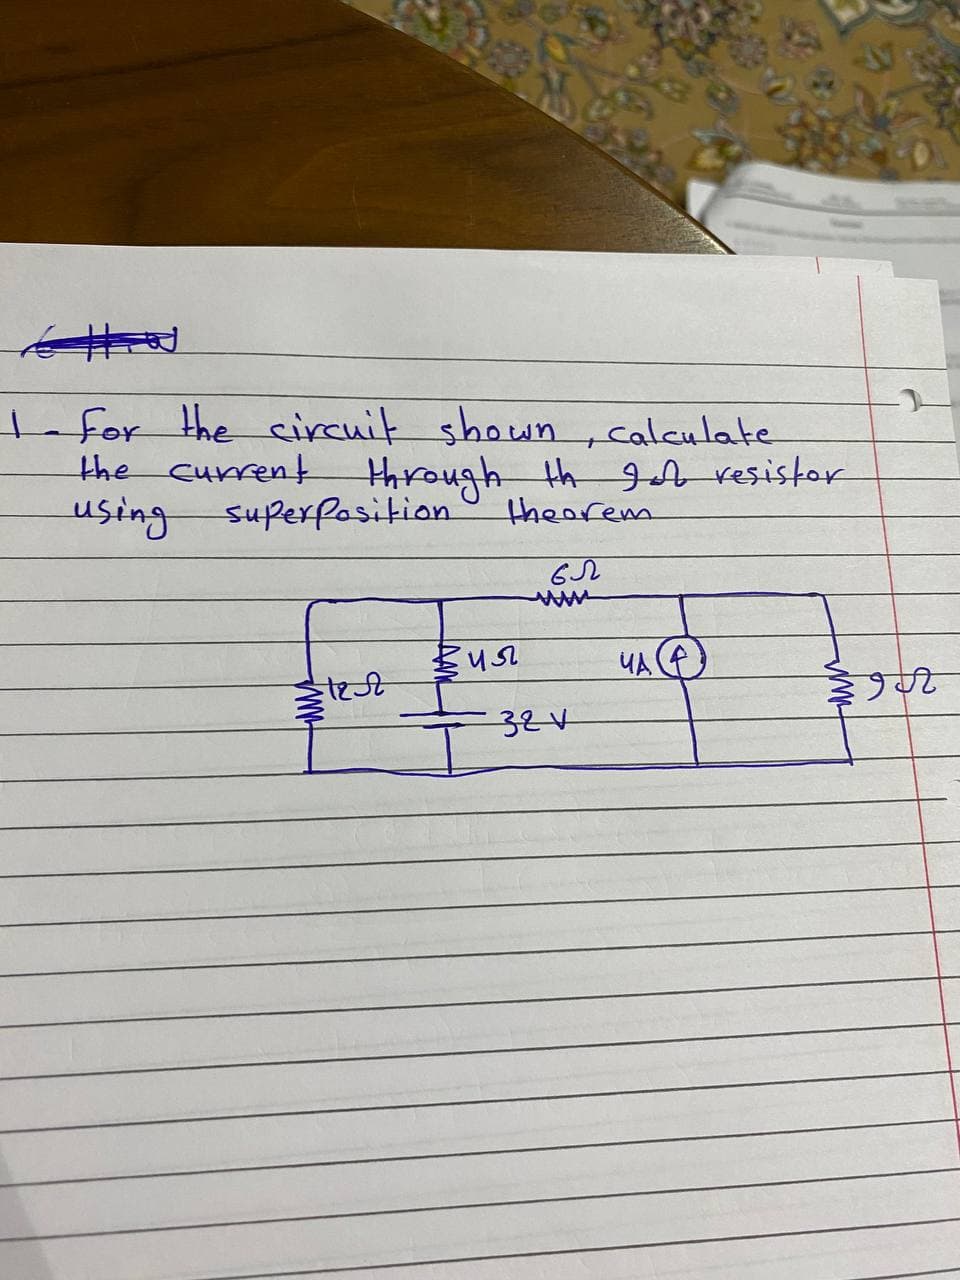 1 - For the circuit shown, calculate
the current through th 9Ω resistor
using superposition theorem
6Ω
12Ω
4Ω
32 V
4A
9Ω